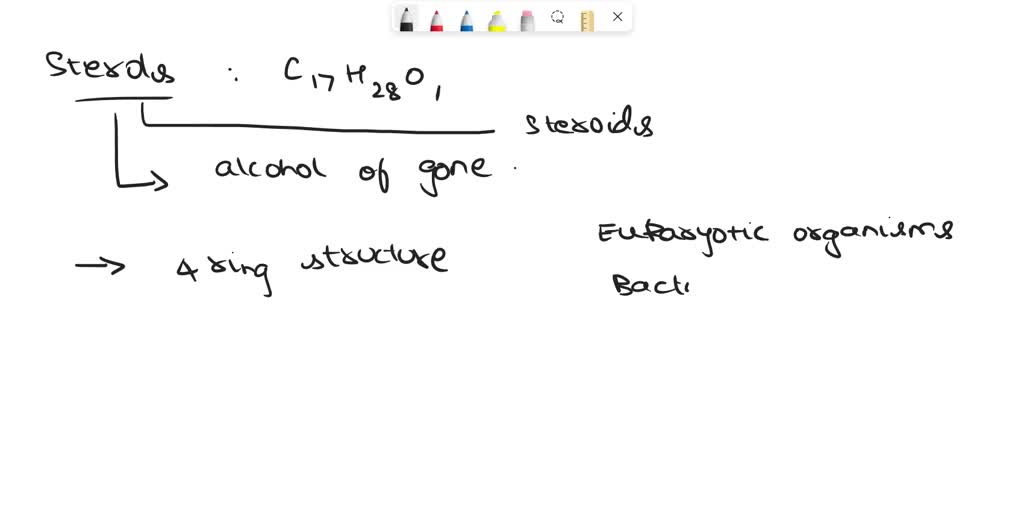 Sterols : C17H28O1
steroids
alcohol of gone
→ 4 ring structure
Eukaryotic organisms
Bacti